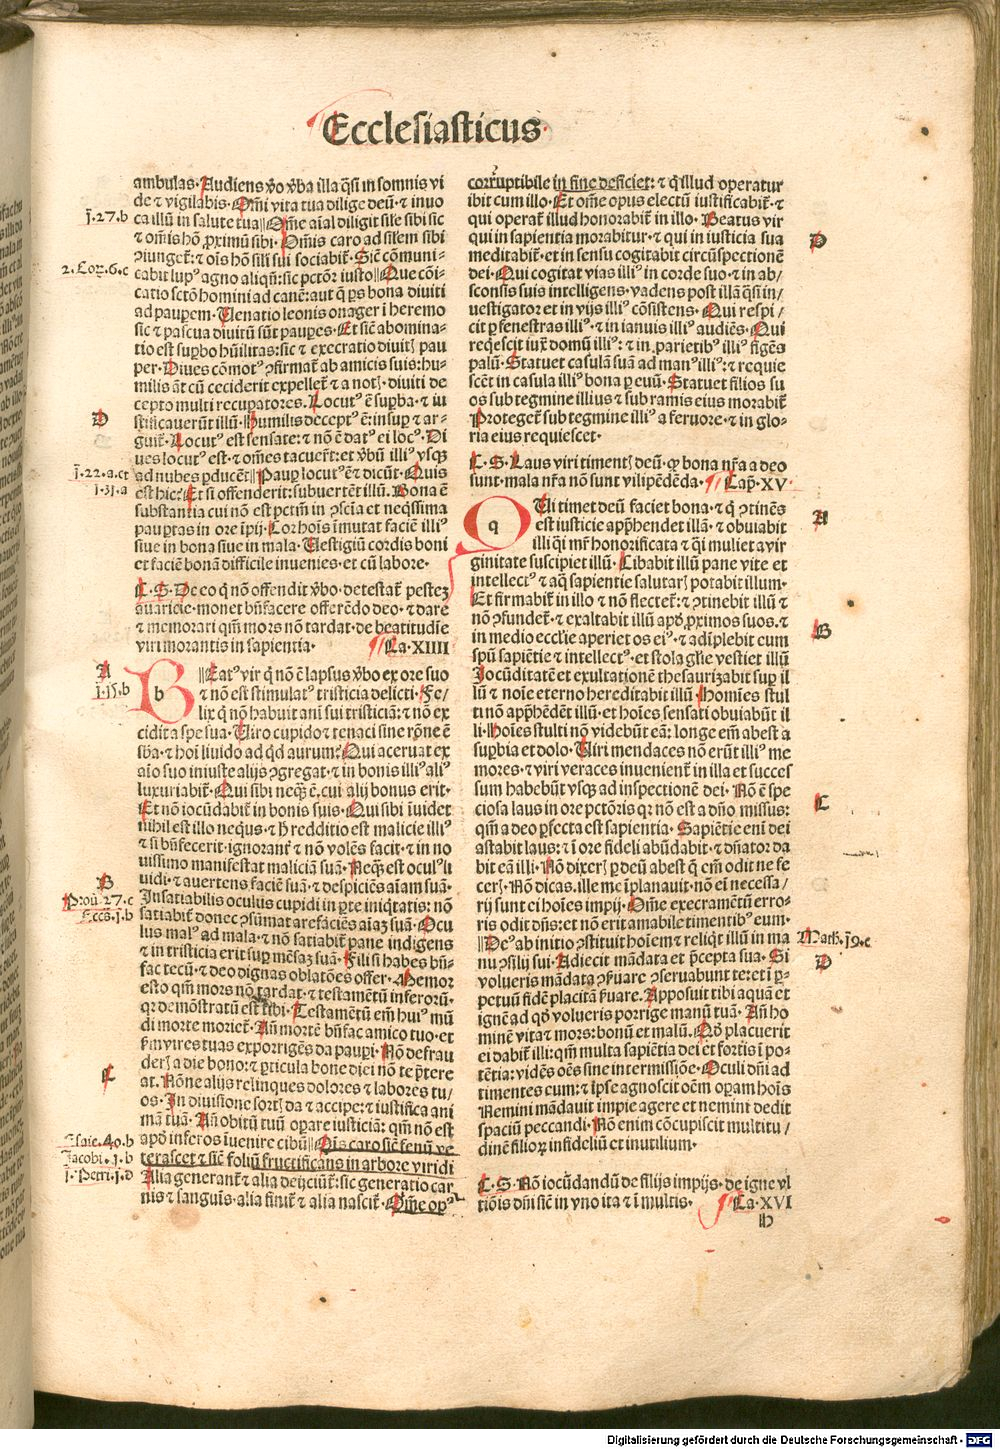 Ecclesiasticus
ambulas. Audiens ṽo ṽba illa q̃si in somnis vi
de ⁊ vigilabis. Om̄i vita tua dilige deũ. ⁊ inuo
j.27.b
ca illũ in salute tua Om̄e aīal diligit sil̃e sibi sic
⁊ om̄is hõ ꝓximũ sibi. Om̄is caro ad sil̃em sibi
ꝯiunget̃: ⁊ oīs hõ sil̃i sui sociabit̃. Sic cõmuni-
2.Cor.6.c
cabit lupꝰ agno aliqñ: sic pctõr iusto Que cõi-
catio sctõ homini ad canẽ: aut q̃ ꝑs bona diuiti
ad pauꝑem. Uenatio leonis onager ĩ heremo
sic ⁊ pascua diuitũ sũt pauꝑes. Et sic̃ abomina-
tio est suꝑbo hũilitas: sic ⁊ execratio diuitis pau
per. Diues cõmotꝰ ꝯfirmat̃ ab amicis suis: hu-
milis aũt cũ ceciderit expellet̃ ⁊ a notis. diuiti de
cepto multi recuꝑatores. Locutꝰ ẽ suꝑba. ⁊ iu
D
stificauerũt illũ. Humilis deceptꝰ ẽ: insuꝑ ⁊ ar-
guit̃. Locutꝰ est sensate: ⁊ nõ ẽ datꝰ ei locꝰ. Di
ues locutꝰ est. ⁊ om̃es tacuer̃t: et ṽbũ illiꝰ vsq̃
j.22.a.et
ad nubes ꝑducẽt Pauꝑ locutꝰ ẽ ⁊ dicũt. Quis
j.3j.a
est hic? Et si offenderit: subuertẽt illũ. Bona ẽ
substantia cui nõ est pctm̃ in ꝯscĩa et neq̃ssima
pauꝑtas in ore ĩpij. Cor hoĩs ĩmutat faciẽ illiꝰ
siue in bona siue in mala. Uestigiũ cordis boni
et faciẽ bonã difficile inuenies. et cũ labore.
C. S. De eo q̃ nõ offendit ṽbo. detestat̃ pestez
auaricie. monet bñfacere offerẽdo deo. ⁊ dare
⁊ memorari qm̃ mors nõ tardat. de beatitudĩe
viri morantis in sapientia. Ca.XIIII
A
b
Eatꝰ vir q̃ nõ ẽ lapsus ṽbo ex ore suo
j.19.b
⁊ nõ est stimulatꝰ tristicia delicti. Fe-
lix q̃ nõ habuit ani sui tristiciã: ⁊ nõ ex
cidit a spe sua. Uiro cupido ⁊ tenaci sine rõne ẽ
sb̃a. ⁊ hoĩ liuido ad qd̃ aurum? Qui aceruat ex
aĩo suo iniuste alijs ꝯgregat. ⁊ in bonis illiꝰ aliꝰ
luxuriabit̃. Qui sibi neq̃ ẽ, cui alij bonus erit.
Et nõ iocũdabit̃ in bonis suis. Qui sibi ĩuidet
nihil est illo neq̃us. ⁊ h̃ redditio est malicie illiꝰ
⁊ si bñfecerit. ignorant̃ ⁊ nõ volẽs facit. ⁊ in no
uissimo manifestat maliciã suã. Neq̃ est oculꝰ li
B
uidi. ⁊ auertens faciẽ suã. ⁊ despiciẽs aĩam suã.
Prou.27.c
Insatiabilis oculus cupidi in ꝑte iniq̃tatis: nõ
Eccs.j.b
satiabit̃ donec ꝯsũmat arefaciẽs aĩaz suã. Ocu
lus malꝰ ad mala. ⁊ nõ satiabit̃ pane indigens
⁊ in tristicia erit suꝑ mẽsaz suã. Fili si habes bñ-
fac tecũ. ⁊ deo dignas oblatões offer. Memor
esto qm̃ mors nõ tardat. ⁊ testamẽtũ inferorũ.
qr demõstratũ est tibi. Testamẽtũ em̃ huiꝰ mũ
di morte moriet̃. Añ mortẽ bñfac amico tuo. et
s̃m vires tuas exporrigẽs da pauꝑi. Nõ defrau
deris a die bono: ⁊ ꝑticula bone diei nõ te p̃tere
C
at. Nõne alijs relinques dolores ⁊ labores tu/
os. In diuisione sortis da ⁊ accipe: ⁊ iustifica ani
mã tuã. Añ obitũ tuũ oꝑare iusticiã: qm̃ nõ est
Esaie.40.b
apd̃ inferos ĩuenire cibũ Oĩs caro sic̃ fenũ ve
Jacobi.j.b
terascet ⁊ sic̃ foliũ fructificans in arbore viridi
j.Petri.j.d
Alia generant̃ ⁊ alia deijciũt̃: sic generatio car
nis ⁊ sanguis. alia finit̃ ⁊ alia nascit̃. Om̃e opꝰ
corruptibile in fine deficiet: ⁊ q̃ illud operatur
ibit cum illo. Et om̃e opus electũ iustificabit̃. ⁊
qui operat̃ illud honorabit̃ in illo. Beatus vir
D
qui in sapientia morabitur. ⁊ qui in iusticia sua
meditabit̃. et in sensu cogitabit circũspectionẽ
dei. Qui cogitat vias illiꝰ in corde suo. ⁊ in ab/
sconsis suis intelligens. vadens post illã q̃si in/
uestigator et in vijs illiꝰ cõsistens. Qui respi/
cit ꝑ fenestras illiꝰ. ⁊ in ianuis illiꝰ audiẽs. Qui
req̃escit iux̃ domũ illiꝰ: ⁊ in parietibꝰ illiꝰ figẽs
palũ. Statuet casulã suã ad manꝰ illiꝰ: ⁊ requie
scẽt in casula illiꝰ bona ꝑ euũ. Statuet filios su
os sub tegmine illius ⁊ sub ramis eius morabit̃
Proteget̃ sub tegmine illiꝰ a feruore. ⁊ in glo-
ria eius requiescet.
C. S. Laus viri timentis deũ. qꝛ bona nr̃a a deo
sunt. mala nr̃a nõ sunt vilipẽdẽda. Cap.XV.
q
Ui timet deũ faciet bona. ⁊ q̃ ꝯtinẽs
A
est iusticie appr̃hendet illã. ⁊ obuiabit
illi q̃i mr̃ honorificata ⁊ q̃i mulier a vir
ginitate suscipiet illũ. Cibabit illũ pane vite et
intellectꝰ ⁊ aq̃ sapientie salutaris potabit illum.
Et firmabit̃ in illo ⁊ nõ flectet̃: ⁊ ꝯtinebit illũ ⁊
nõ ꝯfundet̃. ⁊ exaltabit illũ apd̃ ꝓximos suos. ⁊
B
in medio eccl̃ie aperiet os eiꝰ. ⁊ adĩplebit eum
spũ sapiẽtie ⁊ intellectꝰ. et stola gl̃ie vestiet illũ
Iocũditatẽ et exultationẽ thesaurizabit suꝑ il
lũ ⁊ noĩe eterno hereditabit illũ. Homĩes stul
ti nõ appr̃hẽdẽt illũ. et hoĩes sensati obuiabũt il
li. Hoĩes stulti nõ videbũt eã: longe em̃ abest a
suꝑbia et dolo. Uiri mendaces nõ erũt illiꝰ me
mores. ⁊ viri veraces inuenient̃ in illa et succes
sum habebũt vsq̃ ad inspectionẽ dei. Nõ ẽ spe
C
ciosa laus in ore pctõris: qꝛ nõ est a dño missus:
qm̃ a deo ꝓfecta est sapientia. Sapiẽtie eni dei
astabit laus: ⁊ ĩ ore fideli abũdabit. ⁊ dñator da
bit eã illi. Nõ dixeris ꝑ deũ abest q̃ em̃ odit ne fe
ceris. Nõ dicas. ille me ĩplanauit. nõ ei necessa/
rij sunt ei hoĩes impij. Om̃e execramẽtũ erro-
ris odit dñs: et nõ erit amabile timentibꝰ eum.
Math.19.c
Deꝰ ab initio ꝯstituit hoĩem ⁊ reliq̃t illũ in ma
D
nu ꝯsilij sui. Adiecit mãdata ⁊ p̃cepta sua. Si
volueris mãdata ꝯseruare ꝯseruabunt te ⁊ et ĩ ꝑ-
petuũ fidẽ placitã s̃uare. Apposuit tibi aquã et
ignẽ ad qd̃ volueris porrige manũ tuã. Añ ho
minẽ vita ⁊ mors: bonũ et malũ. Qd̃ placuerit
ei dabit̃ illi: qm̃ multa sapiẽtia dei et fortis ĩ po-
tẽtia: vidẽs oẽs sine intermissiõe. Oculi dñi ad
timentes eum: ⁊ ip̃se agnoscit oẽm oꝑam hoĩs
Nemini mãdauit impie agere et nemini dedit
spaciũ peccandi. Nõ enim cõcupiscit multitu/
dinẽ filioꝝ infideliũ et inutilium.
C. S. Nõ iocũdandũ de filijs impijs. de igne vl
tiõis dñi sic̃ in vno ita ⁊ ĩ multis. Ca.XVI
h
Digitalisierung gefördert durch die Deutsche Forschungsgemeinschaft - DFG